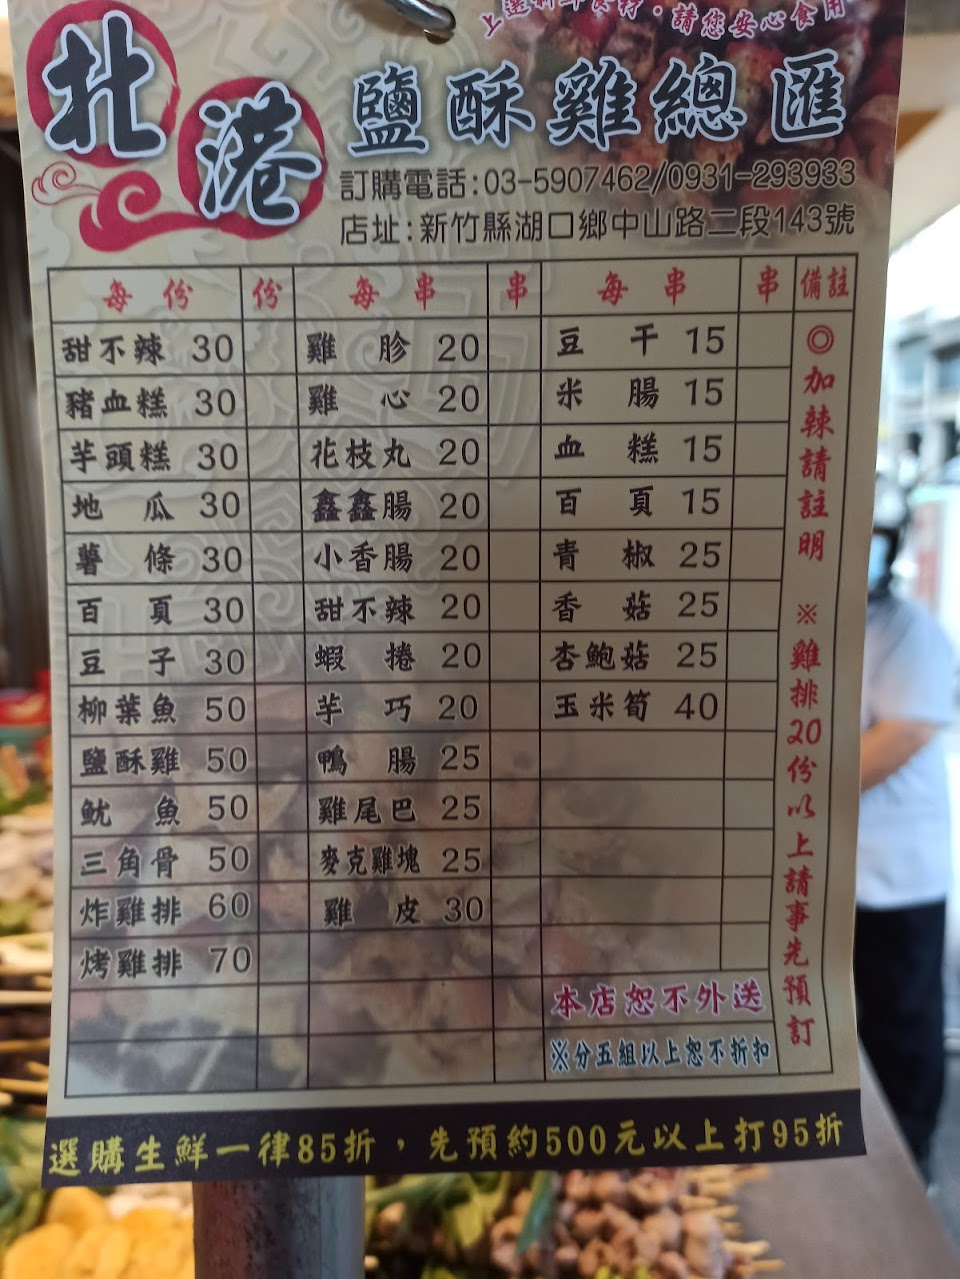 上選新鮮食材，請您安心食用
北港 鹽酥雞總匯
訂購電話:03-5907462/0931-293933
店址:新竹縣湖口鄉中山路二段143號
每份 份 每串 串 每串 串 備註
甜不辣 30 雞胗 20 豆干 15
豬血糕 30 雞心 20 米腸 15
芋頭糕 30 花枝丸 20 血糕 15
地瓜 30 鑫鑫腸 20 百頁 15
薯條 30 小香腸 20 青椒 25
百頁 30 甜不辣 20 香菇 25
豆子 30 蝦捲 20 杏鮑菇 25
柳葉魚 50 芋巧 20 玉米筍 40
鹽酥雞 50 鴨腸 25
魷魚 50 雞尾巴 25
三角骨 50 麥克雞塊 25
炸雞排 60 雞皮 30
烤雞排 70
本店恕不外送
※分五組以上恕不折扣
◎加辣請註明 ※雞排20份以上請事先預訂
選購生鮮一律85折，先預約500元以上打95折